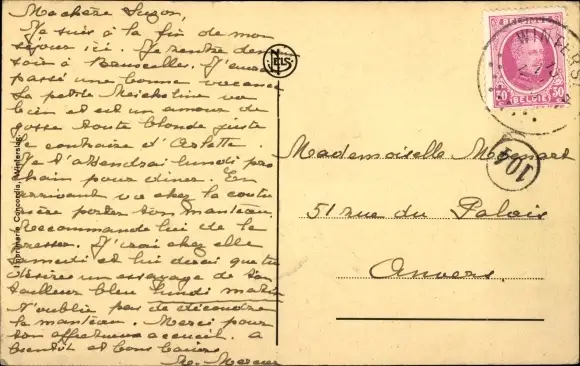 Ma chère Suzon,
Je suis à la fin de mon
séjour ici. Je rentre demain
soir à Bruxelles. J'aurai
passé une bonne vacance
La petite Micheline va
bien et est un amour de
gosse toute blonde juste
le contraire d'Arlette.
Je t'attendrai lundi pro
chain pour diner. En
arrivant va chez la coutu
rière porter ton manteau,
Recommande lui de le
presser. J'irai chez elle
samedi et lui dirai que tu
désires un essayage de ton
tailleur bleu lundi matin
N'oublie pas de découdre
le manteau. Merci pour
ton affectueux accueil. a
bientôt et bons baisers
Imprimerie Concordia, Winterslag
NELS
WINTERSL
50 BELGIE 50
104
Mademoiselle
51 rue du Palais
Anvers